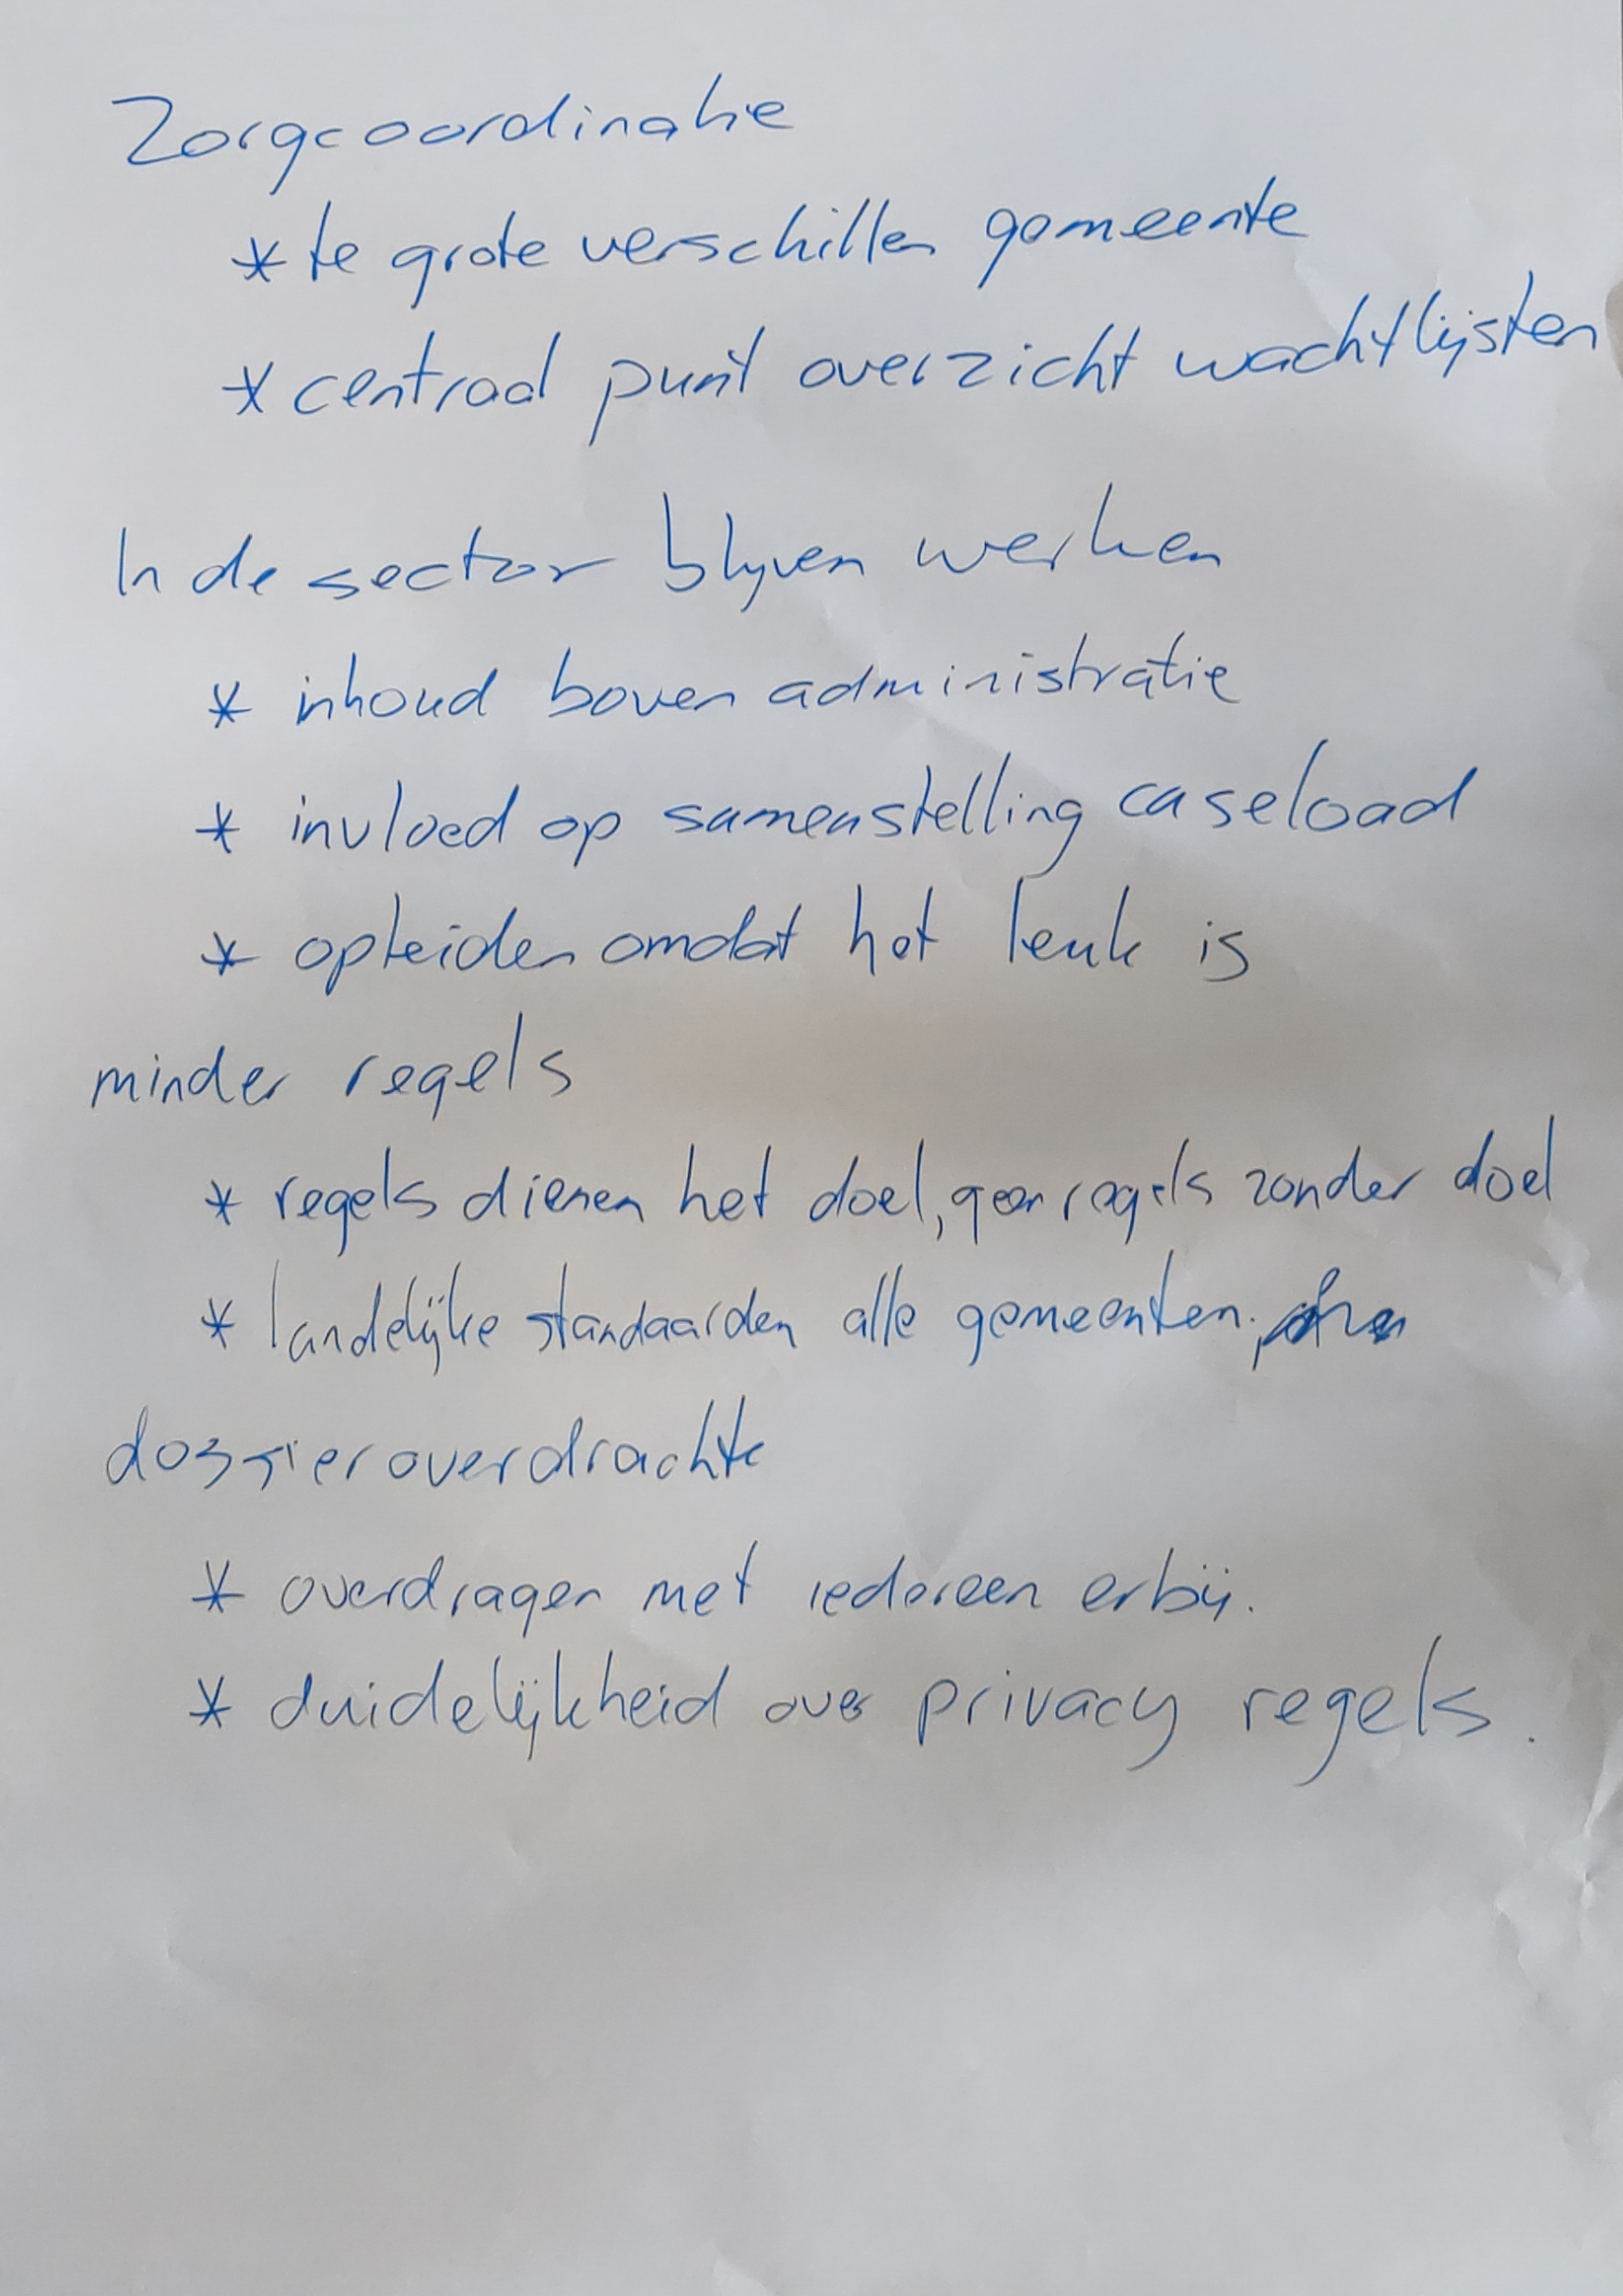 Zorgcoordinatie
* te grote verschillen gemeente
* centraal punt overzicht wachtlijsten
In de sector blijven werken
* inhoud boven administratie
* invloed op samenstelling caseload
* opleiden omdat het leuk is
minder regels
* regels dienen het doel, geen regels zonder doel
* landelijke standaarden alle gemeenten.
dossieroverdrachte
* overdragen met iedereen erbij.
* duidelijkheid over privacy regels.